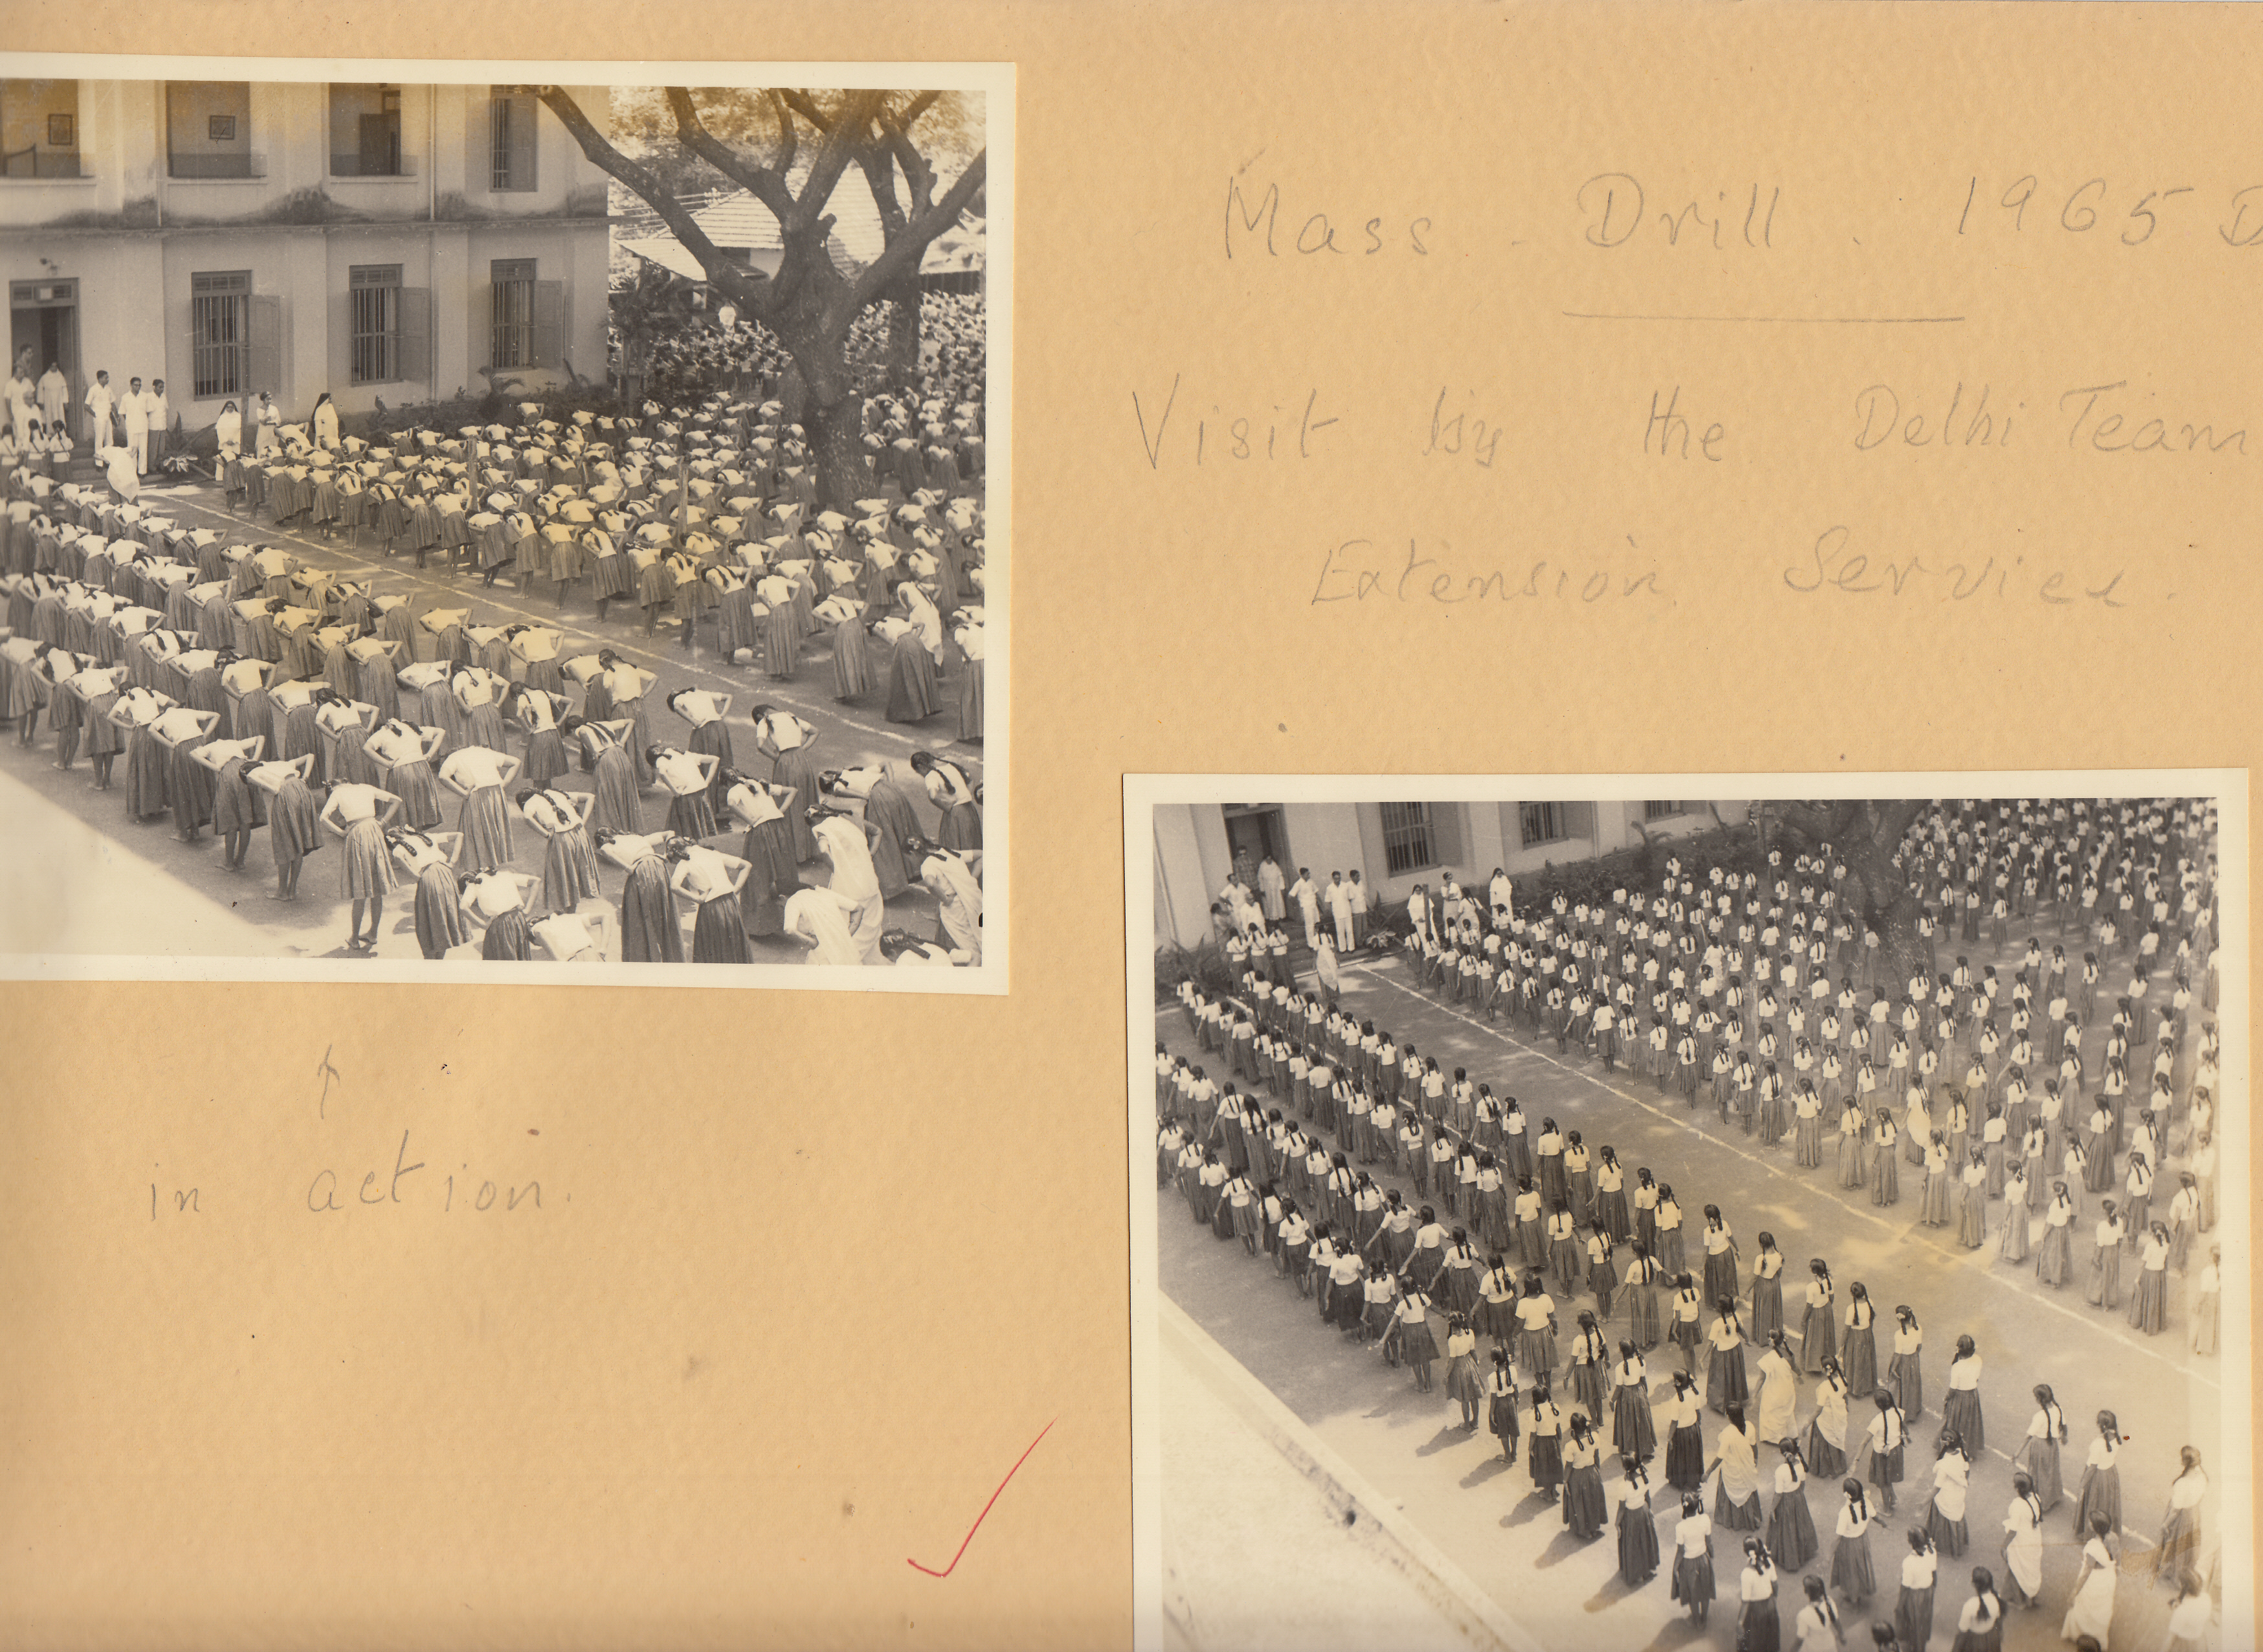 Mass . Drill . 1965 D
Visit by the Delhi Team
Extension Service.
in action.